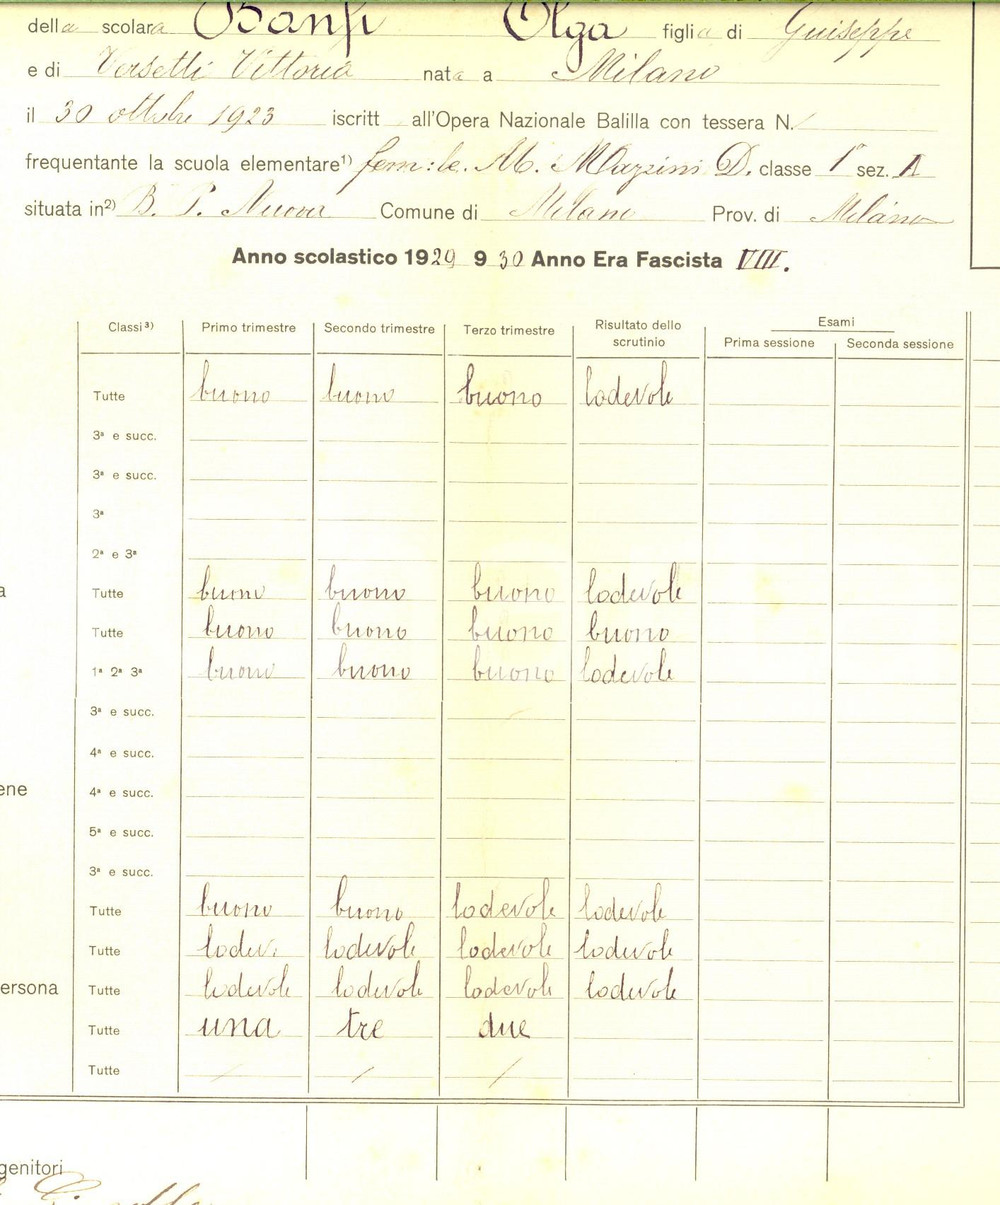 della scolara Banfi Olga figlia di Giuseppe
e di Versetti Vittoria nata a Milano
il 30 ottobre 1923 iscritt all'Opera Nazionale Balilla con tessera N. /
frequentante la scuola elementare¹⁾ fem:le. M. Mazzini D. classe 1ª sez. A
situata in²⁾ B. P. Nuova Comune di Milano Prov. di Milano
Anno scolastico 1929 9 30 Anno Era Fascista VIII.
Classi³⁾ Primo trimestre Secondo trimestre Terzo trimestre Risultato dello scrutinio Esami
Prima sessione Seconda sessione
Tutte buono buono buono lodevole
3ª e succ.
3ª e succ.
3ª
2ª e 3ª
a Tutte buono buono buono lodevole
Tutte buono buono buono buono
1ª 2ª 3ª buono buono buono lodevole
3ª e succ.
4ª e succ.
ene 4ª e succ.
5ª e succ.
3ª e succ.
Tutte buono buono lodevole lodevole
Tutte lodev. lodevole lodevole lodevole
ersona Tutte lodevole lodevole lodevole lodevole
Tutte una tre due
Tutte / / /
genitori